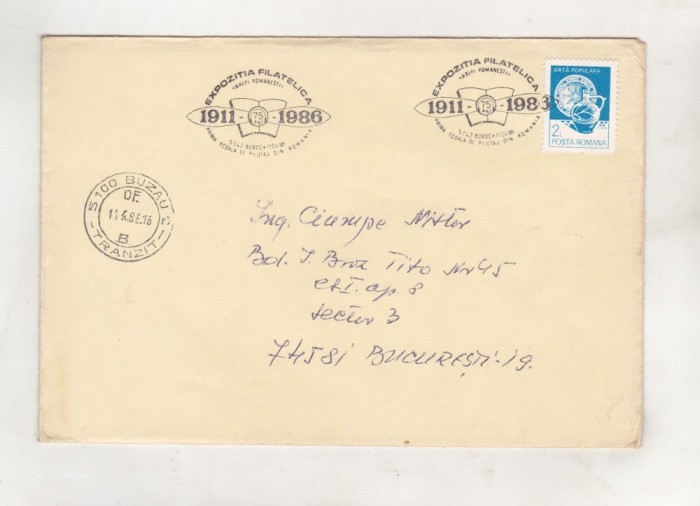 EXPOZITIA FILATELICA
"ARIPI ROMANESTI"
1911 - 75 - 1986
5147 BOBOC • 11.04.86
PRIMA SCOALA DE PILOTAJ DIN ROMANIA
EXPOZITIA FILATELICA
"ARIPI ROMANESTI"
1911 - 75 - 198
5147 BOBOC • 11.04.86
PRIMA SCOALA DE PILOTAJ DIN ROMANIA
ARTĂ POPULARĂ
2L
POSTA ROMANA
5100 BUZAU 2
OF.
11.4.86.16
B
-TRANZIT-
Ing. Ciumpe Nistor
Bd. I. Broz Tito Nr 45
et I. ap 8
sector 3
74581 BUCUREȘTI-19.